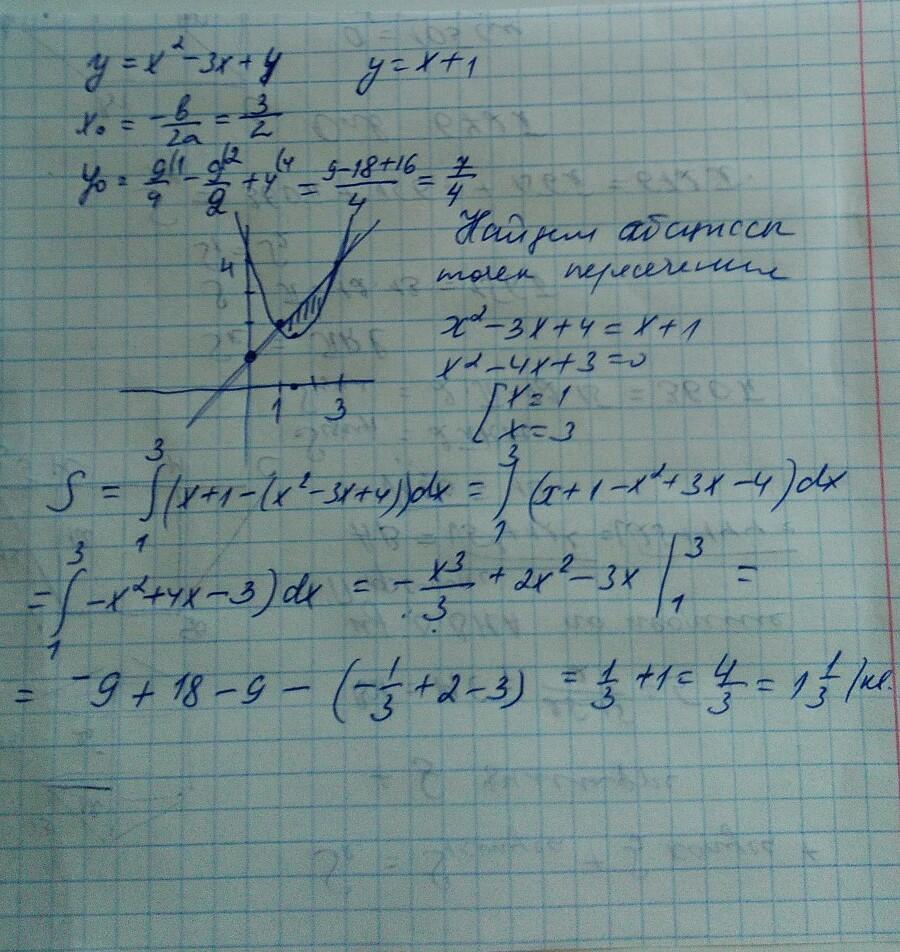 y = x² − 3x + 4 y = x + 1
x₀ = −b/2a = 3/2
y₀ = 9/4 − 9/2 + 4 = (9−18+16)/4 = 7/4
Найдем абсциссы
4
точек пересечения
x² − 3x + 4 = x + 1
x² − 4x + 3 = 0
[ x = 1
1 3
x = 3
S = ∫₁³ (x + 1 − (x² − 3x + 4)) dx = ∫₁³ (x + 1 − x² + 3x − 4) dx
= ∫₁³ −x² + 4x − 3) dx = − x³/3 + 2x² − 3x |₁³ =
= −9 + 18 − 9 − (−1/3 + 2 − 3) = 1/3 + 1 = 4/3 = 1 1/3